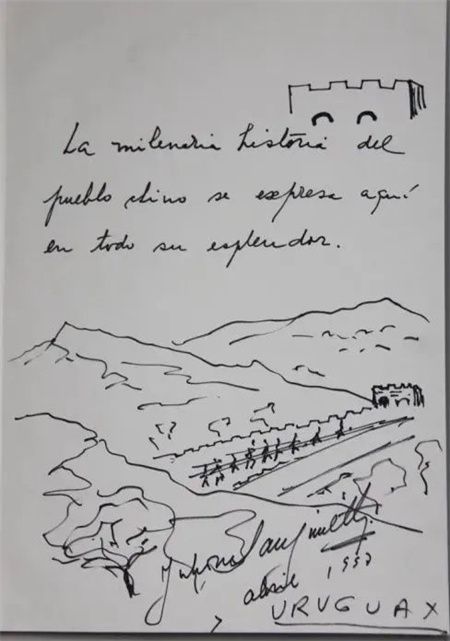 La milenaria historia del
pueblo chino se expresa aquí
en todo su esplendor.
Sanguinetti
abril 1997
URUGUAY